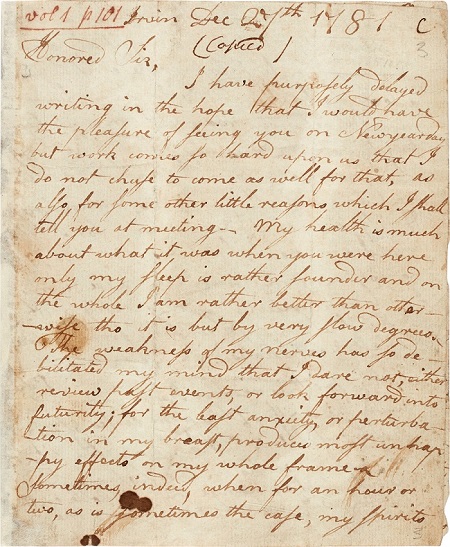 vol 1 p 101 Irvin Dec 27th 1781 C
(Copied) 3
Honored Sir,
I have purposely delayed
writing in the hope that I would have
the pleasure of seeing you on Newyearday
but work comes so hard upon us that I
do not chuse to come as well for that, as
also, for some other little reasons which I shall
tell you at meeting.— My health is much
about what it was when you were here
only my sleep is rather sounder and on
the whole I am rather better than other
-wise tho it is but by very slow degrees.—
The weakness of my nerves has so de-
bilitated my mind that I dare not, either
review past events, or look forward into
futurity; for the least anxiety, or perturba-
tion in my breast, produces most unhap-
py effects on my whole frame.—
Sometimes, indeed, when for an hour or
two, as is sometimes the case, my spirits